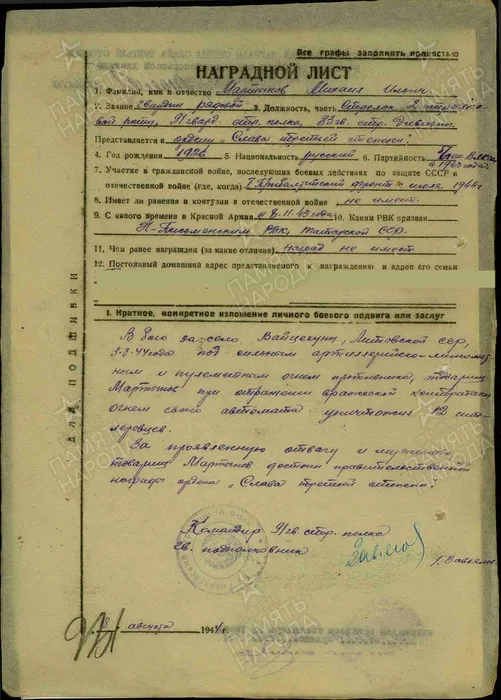 Все графы заполнять полностью
НАГРАДНОЙ ЛИСТ
1. Фамилия, имя и отчество Мартынов Михаил Ильич
2. Звание гвардии рядовой 3. Должность, часть Стрелок 2 стрелко-
вой роты, гвард. стр. полка, дивизии
Представляется к ордену „Слава третьей степени".
4. Год рождения 1926 5. Национальность русский 6. Партийность Член ВЛКСМ
с 1943 года
7. Участие в гражданской войне, последующих боевых действиях по защите СССР в
отечественной войне (где, когда) I Прибалтийский фронт с июля 1944 г
8. Имеет ли ранения и контузии в отечественной войне не имеет
9. С какого времени в Красной Армии с 8.11.43 года 10. Каким РВК призван
Н-Письмянским РВК, Татарской ССР.
11. Чем ранее награжден (за какие отличия) наград не имеет
12. Постоянный домашний адрес представляемого к награждению и адрес его семьи
ДЛЯ ПОДШИВКИ
I. Краткое, конкретное изложение личного боевого подвига или заслуг
В бою за село Литовской сср,
3-8-44 года под сильным артиллерийско-миномет-
ным и пулеметным огнем противника, товарищ
Мартынов при отражении вражеской контратаки
огнем своего автомата уничтожил 12 гит-
леровцев.
За проявленную отвагу и мужество,
товарищ Мартынов достоин правительственной
награды ордена „Слава третьей степени".
Командир гв. стр. полка
гв. подполковник
Завялов
августа 1944 г.
ПАМЯТЬ НАРОДА